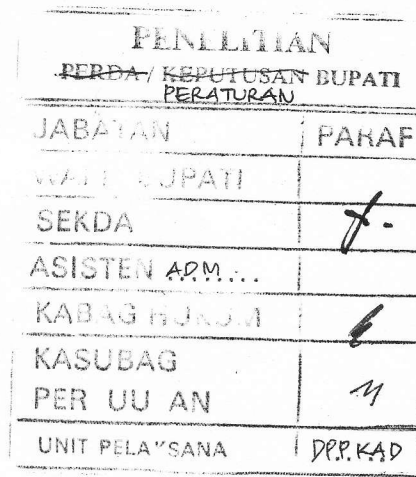 PENELITIAN
PERDA / KEPUTUSAN BUPATI
PERATURAN
JABATAN PARAF
WAKIL BUPATI
SEKDA
ASISTEN ADM...
KABAG HUKUM
KASUBAG
PER UU AN
UNIT PELAKSANA DPPKAD